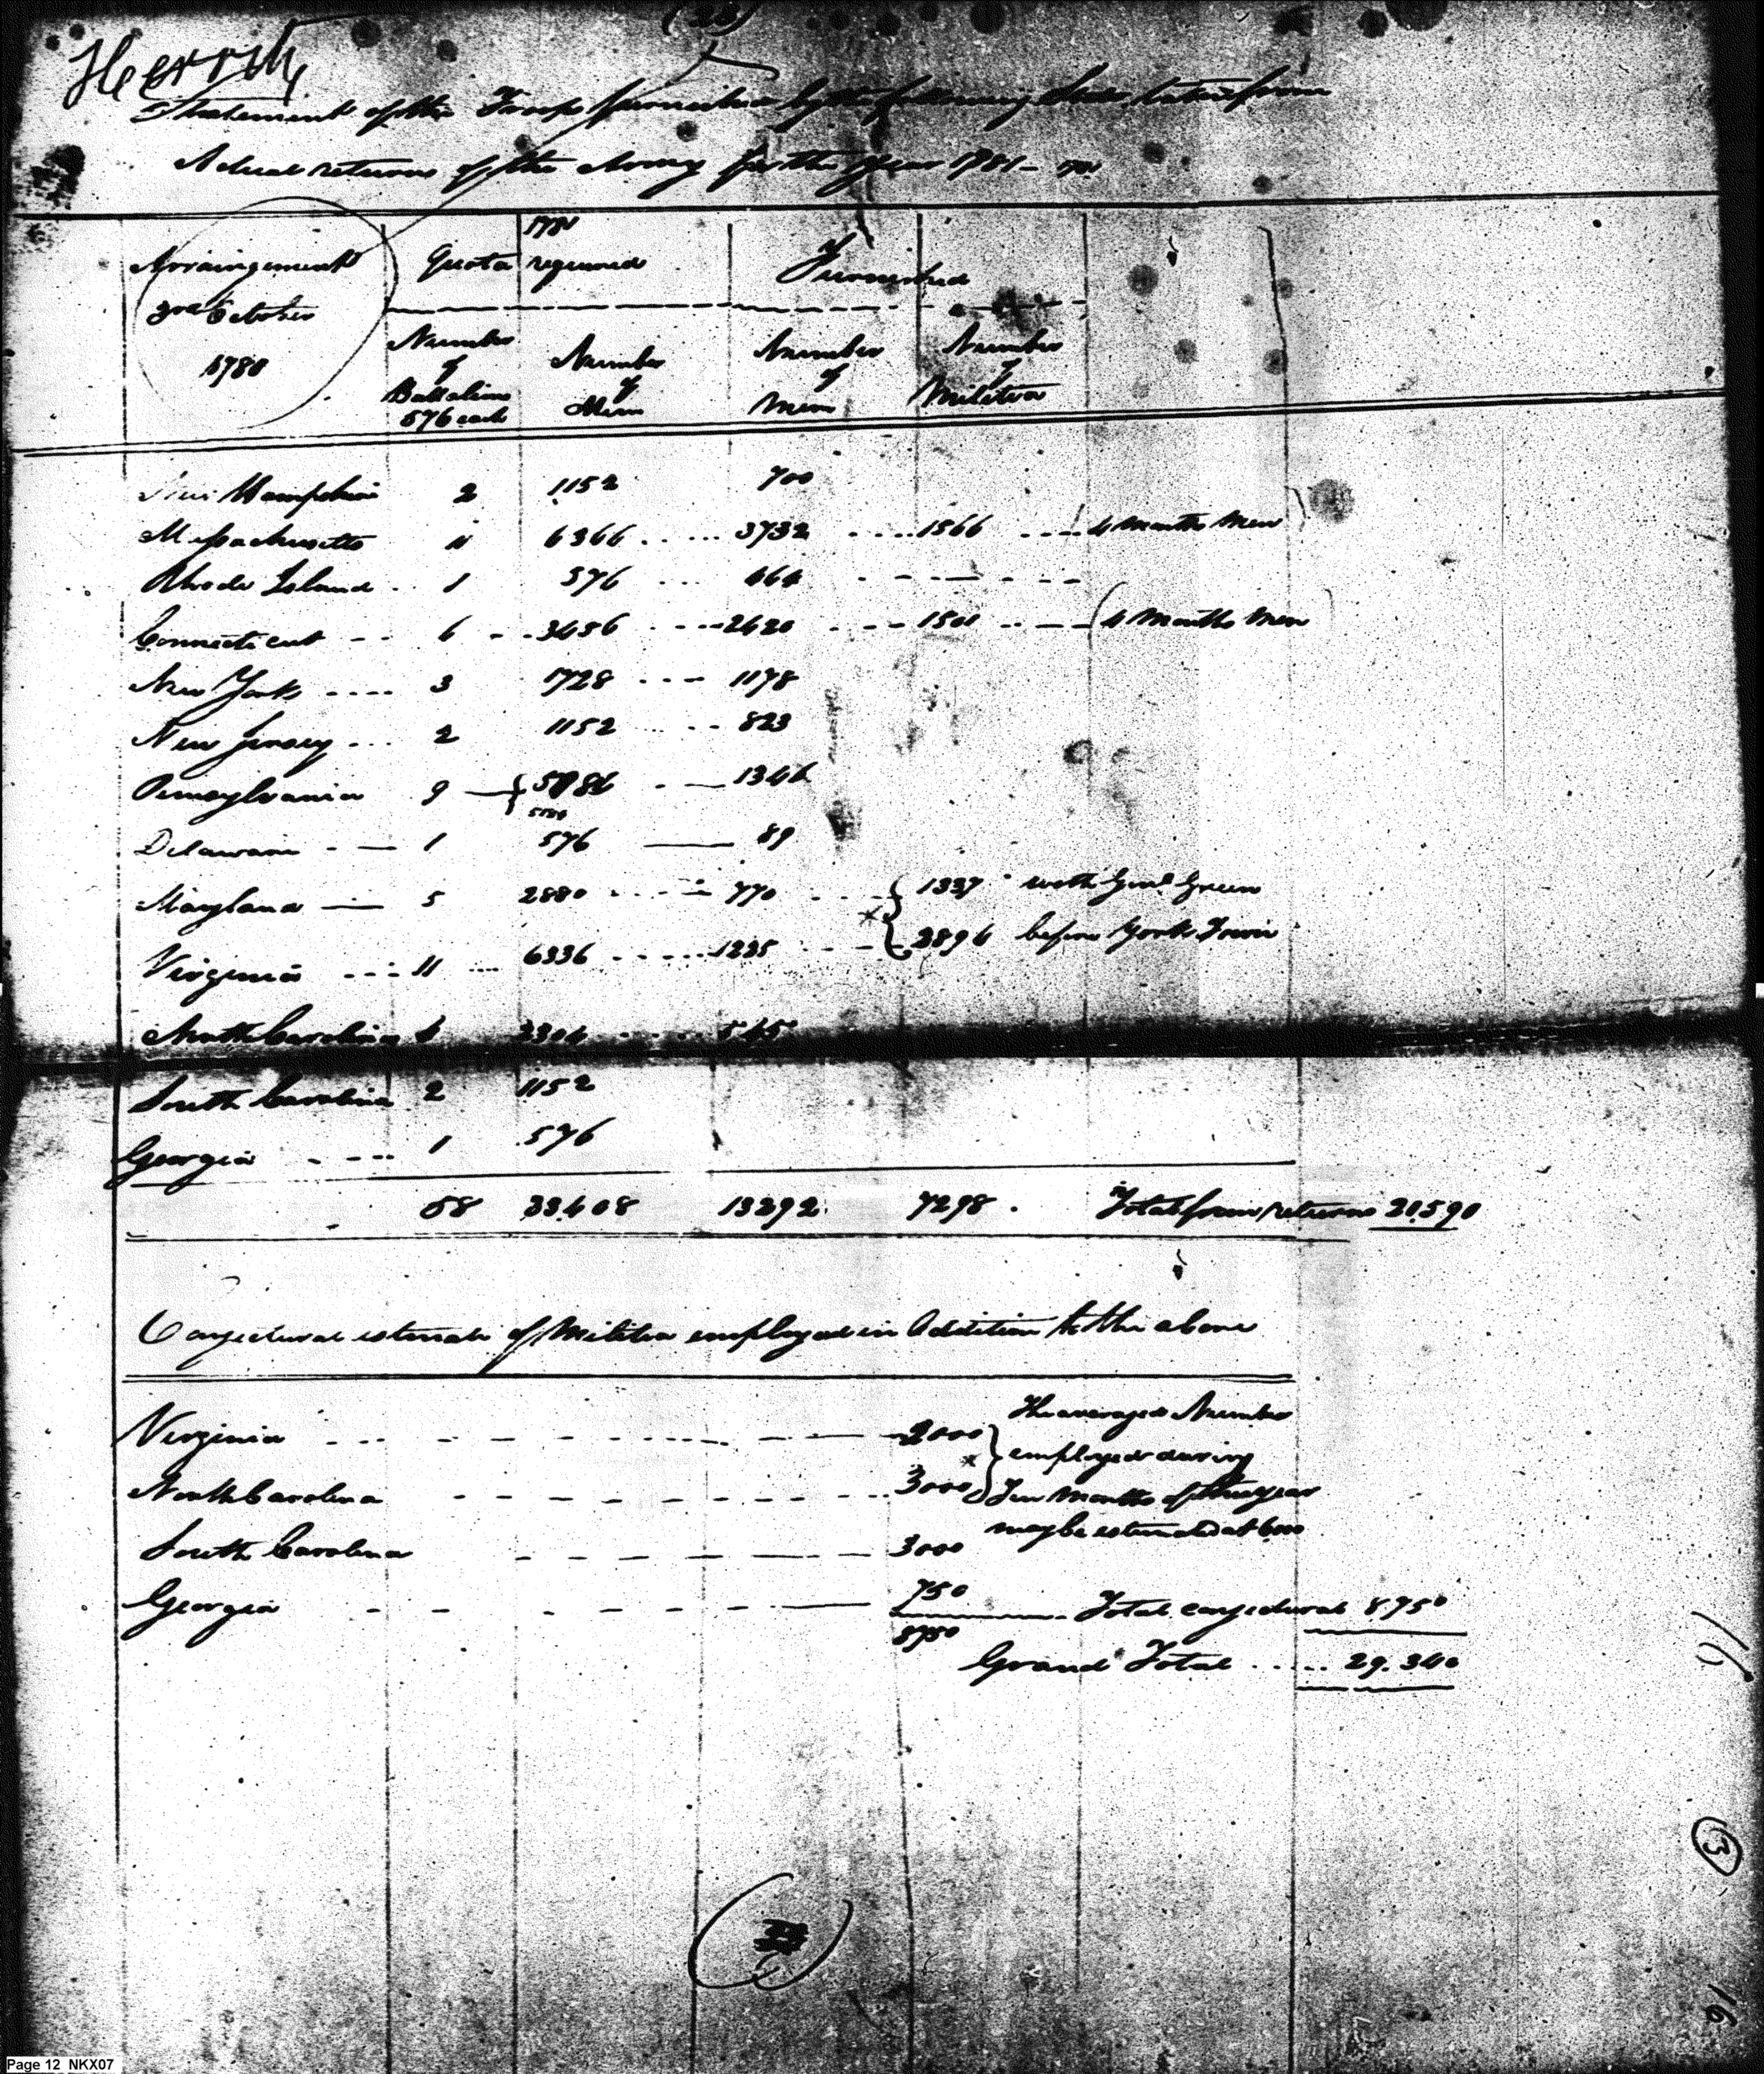 Statement of the Troops furnished by the following States, taken from
Actual returns of the Army for the year 1781 –
Arraingement
3rd October
1780
1781
Quota required
Furnished
Number
of
Battalions
576 each
Number
of
Men
Number
of
Men
Number
of
Militia
New Hampshire 2 1152 700
Massachusetts 11 6366 .. ... 3732 ....1566 ....4 Months Men
Rhode Island . 1 576 ... 464 - - - - - -
Connecticut -- 6 -..3456 . ---2420 . ---1501 ..-- 4 Months Men
New York .... 3 1728 ... 1178
New Jersey ... 2 1152 ... 823
Pennsylvania 9 — 5786 - — 1346
Delaware - — 1 576 — 89
Maryland — 5 2880 ... 770 .... 1337 with Genl Green
Virginia ---11 ... 6336 .....1225 .... * 2896 before York Town
North Carolina 4 2304 ...... 545
South Carolina 2 1152
Georgia ---- 1 576
58 33.408 13292 7298 . Total from returns 20.590
Conjectural estimate of Militia employed in Addition to the above
Virginia ... - - - - - 2000
North Carolina - - - - - - 3000
South Carolina - - - - - - 3000
Georgia - - - - - 750
* The averaged Number
employed during
Ten Months of this year
may be estimated at 6000
8750
Total conjectural 8.750
Grand Total ..... 29.340
13
16
Page 12 NKX07